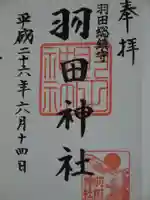 奉拝
羽田総鎮守
羽田神社
平成二十六年六月十四日